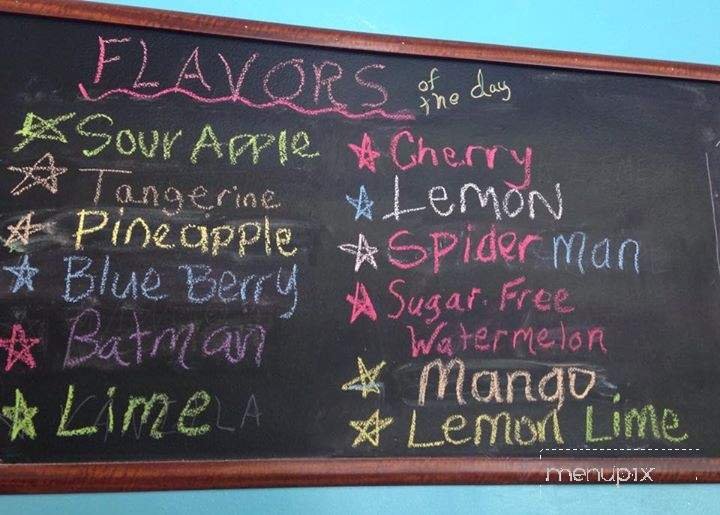 FLAVORS of the day
Sour Apple
Tangerine
Pineapple
Blue Berry
Batman
Lime
Cherry
LEMON
Spider Man
Sugar Free
Watermelon
Mango
Lemon Lime
menupix